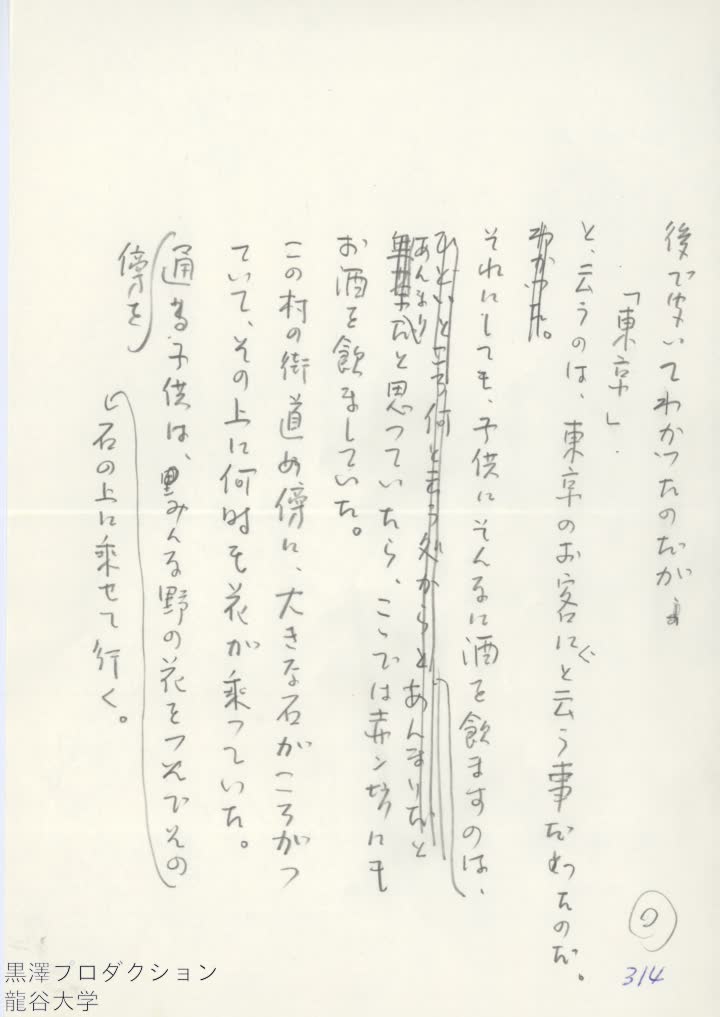 後で聞いてわかつたのだが
「東京」
と、云うのは、東京のお客にぐと云う事だつたのだ。
わかつた。
それにしても、子供にそんなに酒を飲ますのは、
ひどいと
あんまりだと
無茶だと思つていたら、こゝでは赤ン坊にも
お酒を飲ましていた。
この村の街道の傍に、大きな石がころがつ
ていて、その上に何時も花が乗つていた。
通る子供は、みんな野の花をつんでその
石の上に乗せて行く。
傍を
7
314
黒澤プロダクション
龍谷大学